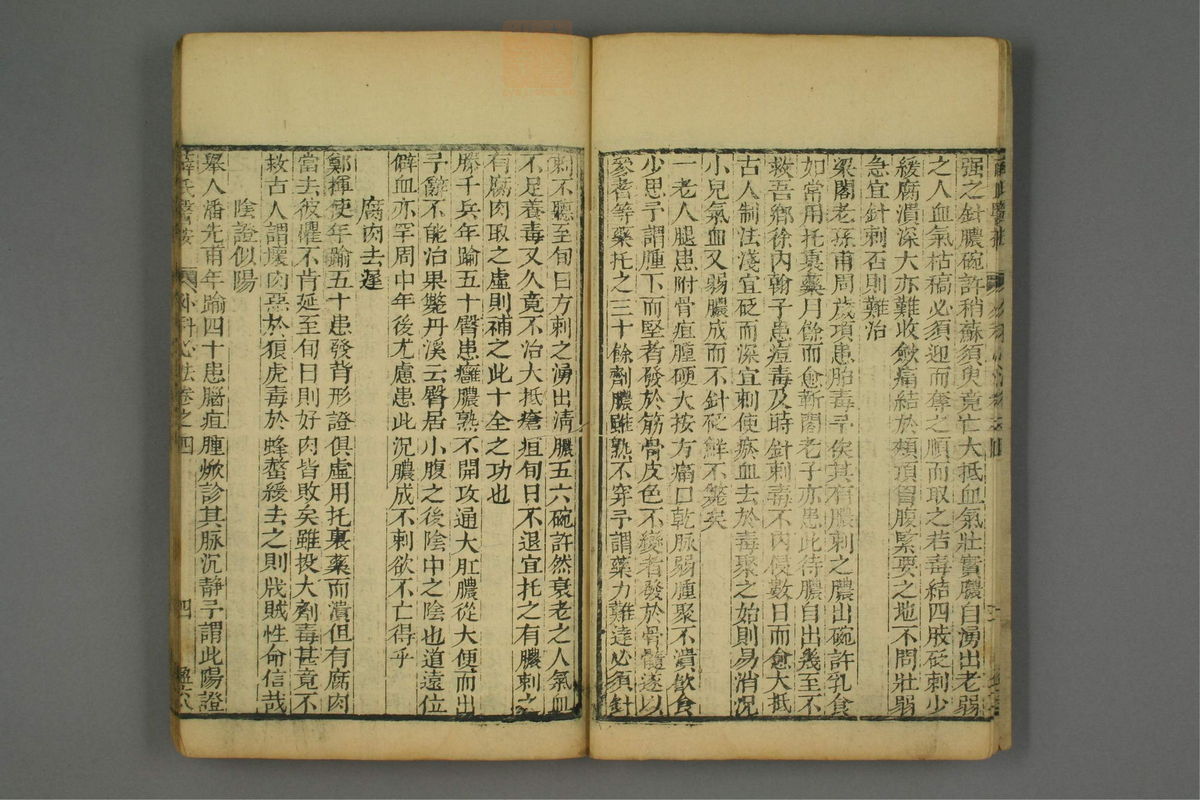 强之針膿碗許稍蘇須臾竟亡大抵血氣壯實膿自湧出老弱
之人血氣枯槁必須迎而奪之順而取之若毒結四肢砭刺少
緩腐潰深大亦難收斂痛結於頰項胷腹緊要之地不問壯弱
急宜針刺否則難治
梁閣老孫甫周歲項患胎毒予俟其有膿刺之膿出碗許乳食
如常用托裏藥月餘而愈靳閣老子亦患此待膿自出幾至不
救吾鄉徐内翰子患痘毒及時針刺毒不内侵數日而愈大抵
古人制法淺宜砭而深宜刺使瘀血去於毒聚之始則易消况
小兒氣血又弱膿成而不針砭鮮不斃矣
一老人腿患附骨疽腫硬大按方痛口乾脉弱腫聚不潰飲食
少思予謂腫下而堅者發於筋骨皮色不變者發於骨髓遂以
參耆等藥托之三十餘劑膿雖熟不穿予謂藥力難達必須針
刺不聽至旬日方刺之湧出清膿五六碗許然衰老之人氣血
不足養毒又久竟不治大抵瘡疽旬日不退宜托之有膿刺之
有腐肉取之虛則補之此十全之功也
滕千兵年踰五十臀患癰膿熟不開攻通大肛膿從大便而出
予辭不能治果斃丹溪云臀居小腹之後陰中之陰也道遠位
僻血亦罕周中年後尤慮患此况膿成不刺欲不亡得乎
腐肉去遲
鄭揮使年踰五十患發背形證俱虛用托裏藥而潰但有腐肉
當去彼懼不肯延至旬日則好肉皆敗矣雖投大劑毒甚竟不
救古人謂壞肉惡於狼虎毒於蜂螫緩去之則戕賊性命信哉
陰證似陽
舉人潘先甫年踰四十患腦疽腫焮診其脉沉靜予謂此陽證
薛氏醫按 外科心法卷之四 四